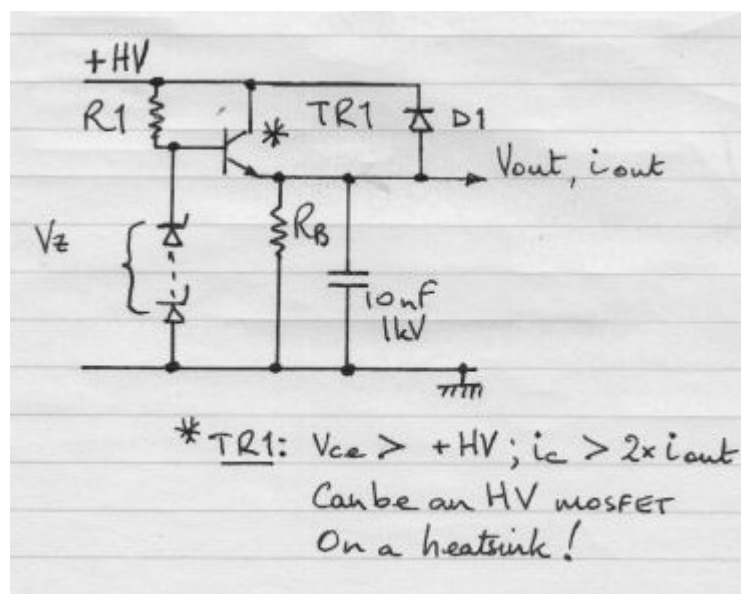 +HV
R1
TR1
D1
*
Vout, iout
Vz
RB
10nF
1kV
* TR1: Vce > +HV; ic > 2x iout
Can be an HV MOSFET
On a heatsink!